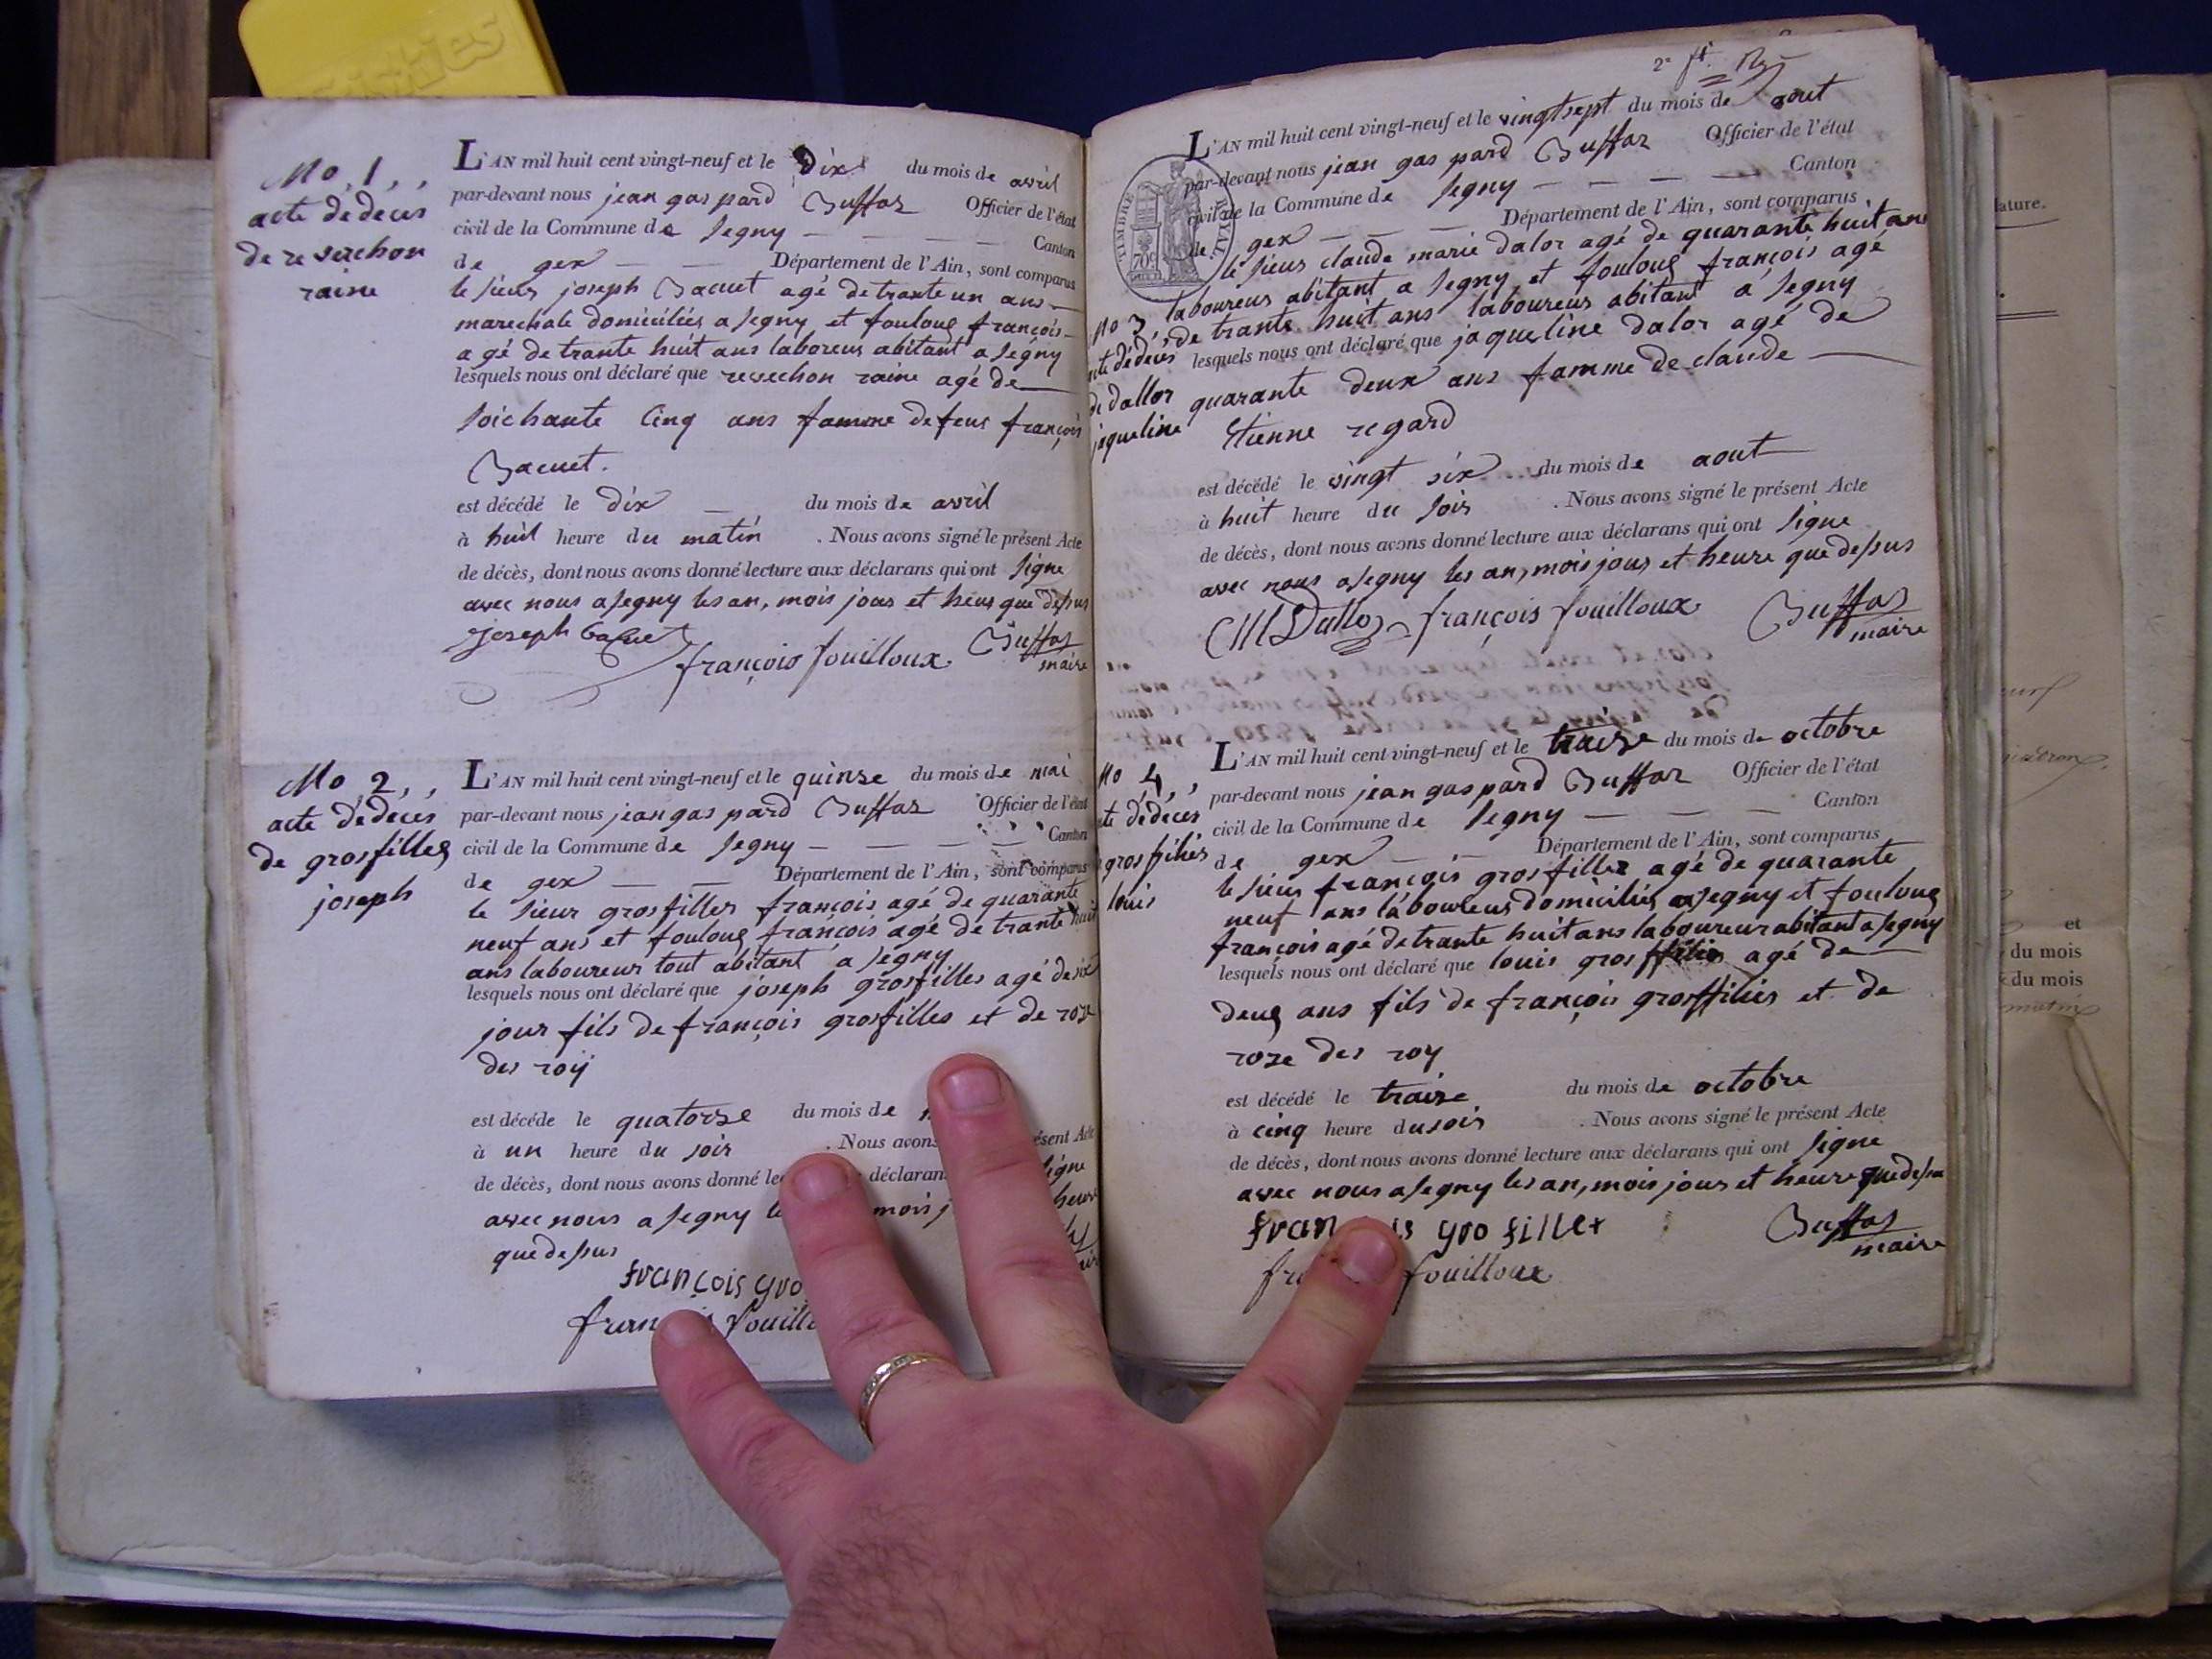 No 1,,
acte de décès
de reverchon
raine
L'AN mil huit cent vingt-neuf et le Dix du mois de avril
par-devant nous jean gaspard Buffaz Officier de l'état
civil de la Commune de Segny — — — — Canton
de gex — — Département de l'Ain, sont comparus
le sieur joseph Baquet agé de trante un ans
marechale domiciliés a Segny et fouloug françois
agé de trante huit ans laboreur abitant a Segny
lesquels nous ont déclaré que revechon raine agé de
soichante Cinq ans famme de feux françois
Bacuet.
est décédé le dix — du mois de avril
à huit heure du matin . Nous avons signé le présent Acte
de décès, dont nous avons donné lecture aux déclarans qui ont signe
avec nous a Segny les an, mois jour et heur que dessus
joseph Baquet
françois fouilloux
Buffaz
maire
No 2,,
acte de décès
de grosfilleg
joseph
L'AN mil huit cent vingt-neuf et le quinse du mois de mai
par-devant nous jean gaspard Buffaz Officier de l'état
civil de la Commune de Segny — — — — Canton
de gex — — Département de l'Ain, sont comparus
le sieur grosfilles françois agé de quarante
neuf ans et fouloug françois agé de trante huit
ans laboureur tout abitant a Segny
lesquels nous ont déclaré que joseph grosfilles agé de six
jour fils de françois grosfilles et de roze
des roy
est décéde le quatorse du mois de
à un heure du soir . Nous avons ésent Acte
de décès, dont nous avons donné le déclaran signe
avec nous a Segny mois heure
que dessus
françois gro
fouill
2e
L'AN mil huit cent vingt-neuf et le vingt sept du mois de aout
par-devant nous jean gaspard Buffaz Officier de l'état
civil de la Commune de Segny — — — — Canton
de gex — — — Département de l'Ain, sont comparus
TIMBRE ROYAL
70c
le sieur claude marie dalor agé de quarante huit ans
laboureur abitant a Segny et fouloug françois agé
de trante huit ans laboureur abitant a Segny
No 3,,
acte dédéces
de dallor
jaqueline
lesquels nous ont déclaré que jaqueline dalor agé de
quarante deux ans famme de claude —
Etienne regard
est décédé le vingt six du mois de aout
à huit heure du soir . Nous avons signé le présent Acte
de décès, dont nous avons donné lecture aux déclarans qui ont signe
avec nous a Segny les an, mois jour et heure que dessus
CM Dalloz françois fouilloux
Buffaz
maire
No 4,,
acte dédéces
grosfiliés
louis
L'AN mil huit cent vingt-neuf et le traize du mois de octobre
par-devant nous jean gaspard Buffaz Officier de l'état
civil de la Commune de Segny — — — Canton
de gex — — Département de l'Ain, sont comparus
le sieur françois grosfillez agé de quarante
neuf ans laboureur domiciliés a Segny et fouloug
françois agé de trante huit ans laboureur abitant a Segny
lesquels nous ont déclaré que louis gros agé de —
deug ans fils de françois grosffiliés et de
roze des roy
est décédé le traize du mois de octobre
à cinq heure du soir . Nous avons signé le présent Acte
de décès, dont nous avons donné lecture aux déclarans qui ont signe
avec nous a Segny les an, mois jour et heure que dessus
fran is gro fillet
fouilloux
Buffaz
maire
ature.
et
du mois
du mois
matin